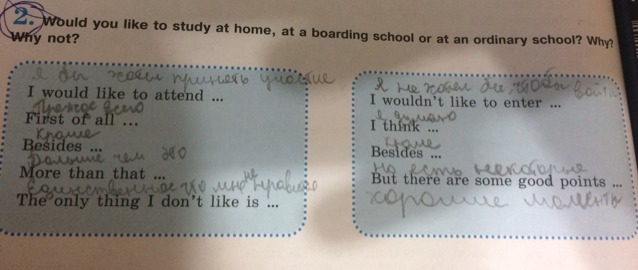 2. Would you like to study at home, at a boarding school or at an ordinary school? Why?
Why not?
Я бы хотел принять участие
I would like to attend ...
Прежде всего
First of all ...
Кроме
Besides ...
Больше чем это
More than that ...
Единственное что мне не нравится
The only thing I don't like is ...
Я не хотел бы, чтобы войти
I wouldn't like to enter ...
я думаю
I think ...
Кроме
Besides ...
Но есть некоторые
But there are some good points ...
хорошие моменты